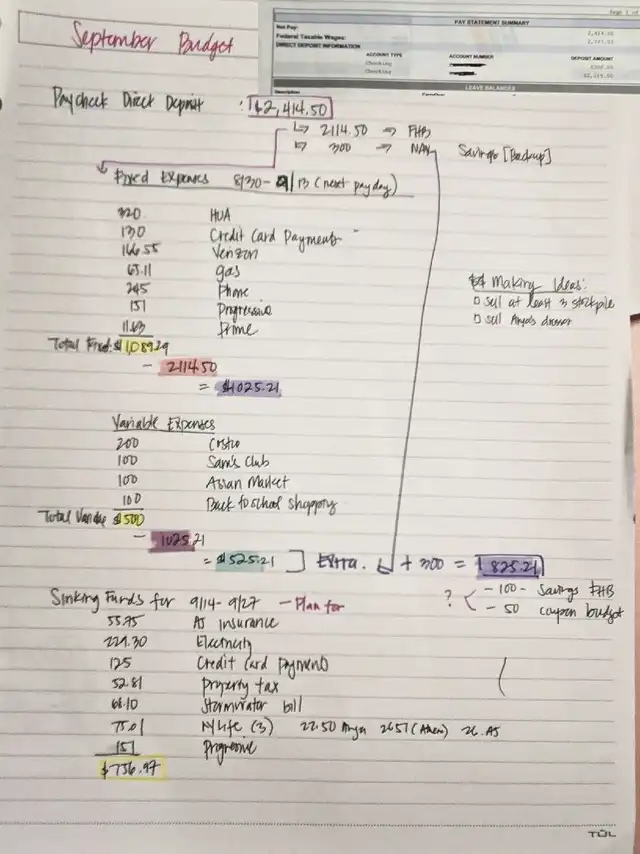 Page 1 of
PAY STATEMENT SUMMARY
Net Pay:
Federal Taxable Wages:
DIRECT DEPOSIT INFORMATION
ACCOUNT TYPE ACCOUNT NUMBER DEPOSIT AMOUNT
Checking
Checking
LEAVE BALANCES
Description
September Budget
Paycheck Direct Deposit : $2,414.50
↳ 2114.50 ⇒ FHB
↳ 300 ⇒ Savings [Backup]
Fixed Expenses 8/30 - 9/13 (next payday)
320 HUA
130 Credit Card Payments
166.55 Verizon
63.11 gas
245 Phone
151 Progressive
11.63 Prime
Total Fixed: $1,089.29
- 2114.50
= $1025.21
$$ Making Ideas:
□ Sell at least 3 stockpile
□ Sell dresser
Variable Expenses
200 Costco
100 Sam's Club
100 Asian Market
100 Back to school shopping
Total $500
- 1025.21
= $525.21 ] Extra. + 300 = 825.21
? < - 100 - Savings FHB
- 50 coupon budget
Sinking Funds for 9/14 - 9/27 - Plan for
55.75 AJ insurance
Electricity
125 Credit Card Payments
52.81 Property tax
Stormwater bill
75.01 NYLife (3) 22.50 26.51 (Athen) 26. AJ
151 Progressive
$756.97
TUL